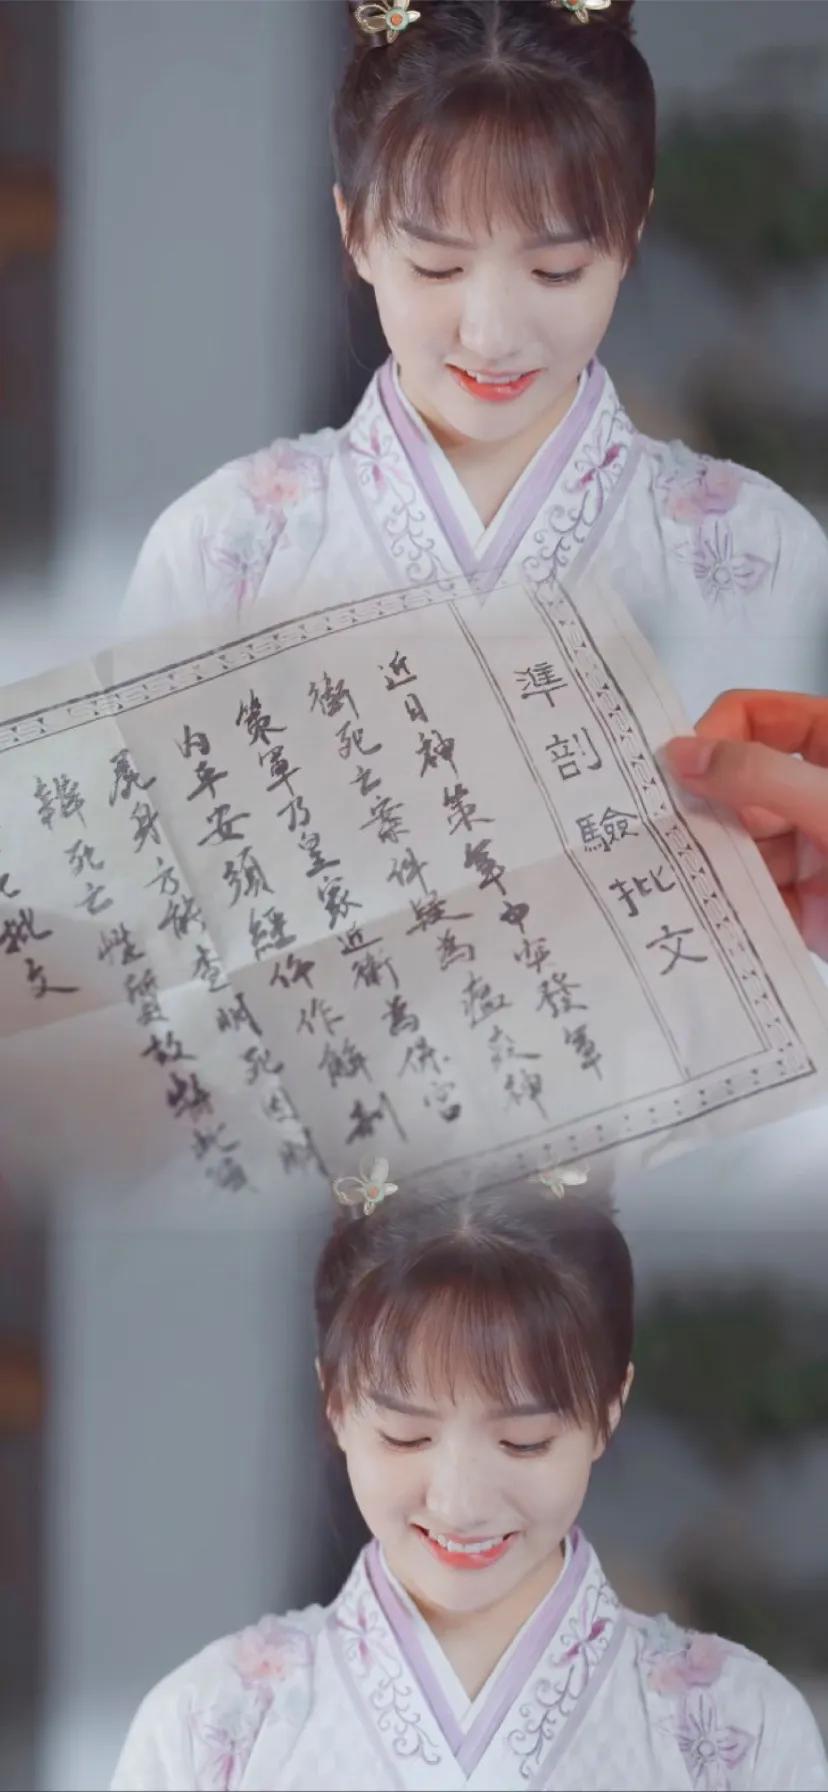 準剖驗批文
近日神策軍中突發軍
衛死亡案件疑為瘟疫神
策軍乃皇家近衛為保宮
內平安須經仵作解剖
屍身方能查明死因明
辯死亡性質故特此頒
批文